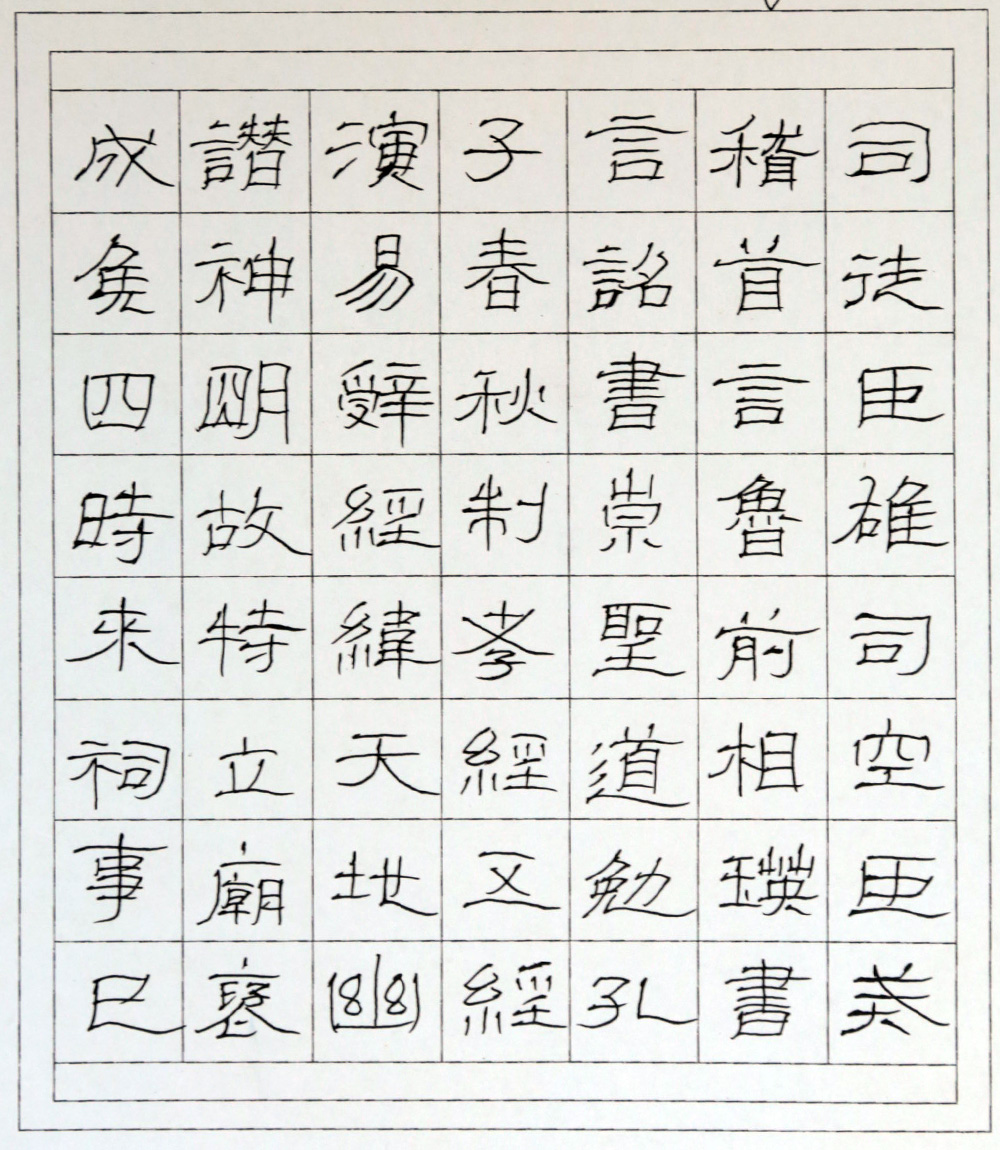 司徒臣雄司空臣戒
稽首言魯前相瑛書
言詔書崇聖道勉孔
子春秋制孝經五經
演易辭經緯天地幽
讃神明故特立廟褒
成侯四時來祠事已